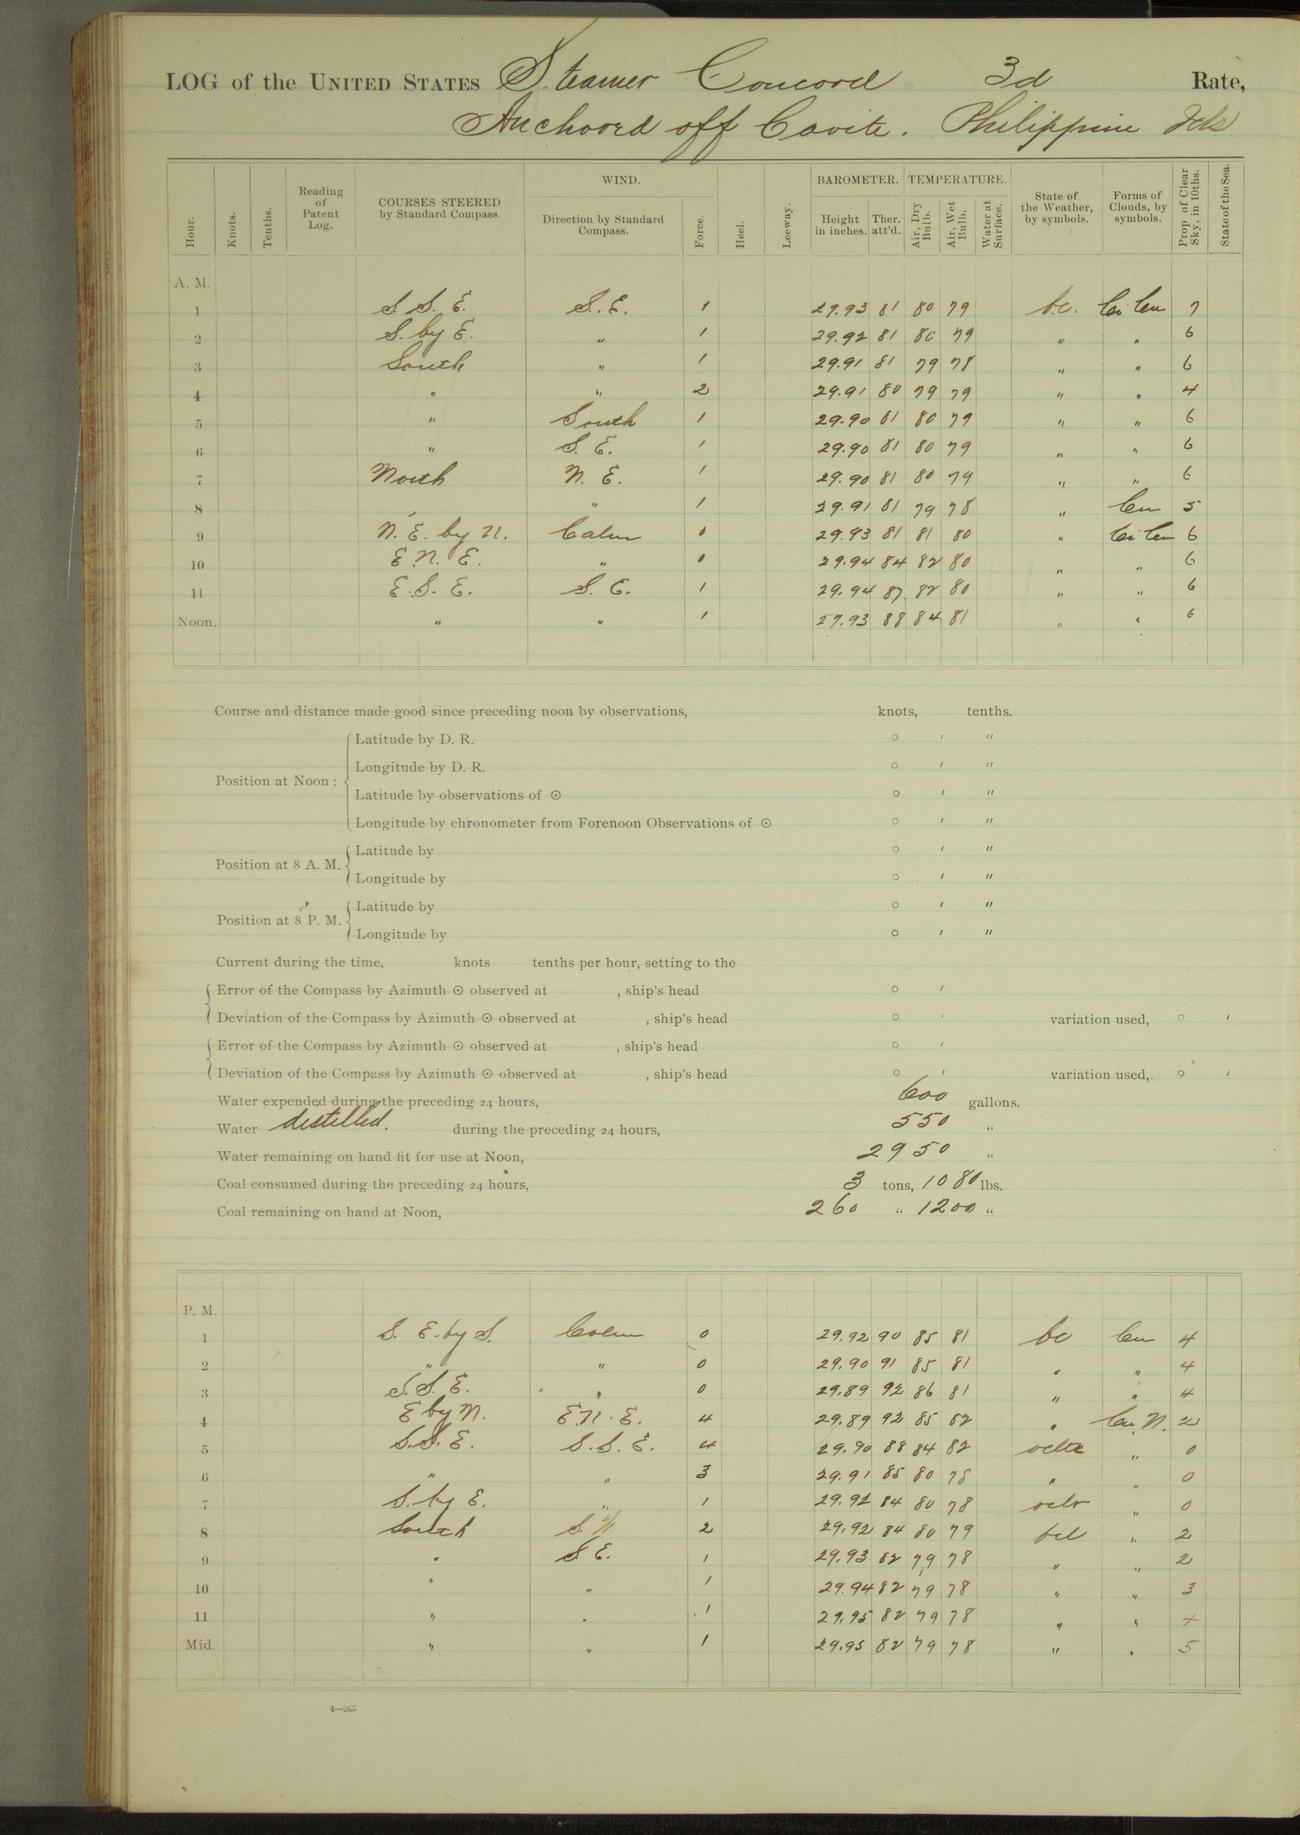 LOG of the UNITED STATES Steamer Concord 3d Rate,
Anchored off Cavite. Philippine Ids
Hour. Knots. Tenths. Reading of Patent Log. COURSES STEERED by Standard Compass. WIND. Direction by Standard Compass. Force. Heel. Leeway. BAROMETER. Height in inches. Ther. att'd. TEMPERATURE. Air, Dry Bulb. Air, Wet Bulb. Water at Surface. State of the Weather, by symbols. Forms of Clouds, by symbols. Prop. of Clear Sky, in 10ths. State of the Sea.
A. M.
1 S. S. E. S. E. 1 29.93 81 80 79 b.c. Ci Cu 7
2 S. by E. " 1 29.92 81 80 79 " " 6
3 South " 1 29.91 81 79 78 " " 6
4 " " 2 29.91 80 79 79 " " 4
5 " South 1 29.90 81 80 79 " " 6
6 " S. E. 1 29.90 81 80 79 " " 6
7 North N. E. 1 29.90 81 80 79 " " 6
8 " " 1 29.91 81 79 78 " Cu 5
9 N. E. by N. Calm 0 29.93 81 81 80 " Ci Cu 6
10 E. N. E. " 0 29.94 84 82 80 " " 6
11 E. S. E. S. E. 1 29.94 87 82 80 " " 6
Noon. " " 1 29.93 88 84 81 " " 6
Course and distance made good since preceding noon by observations, knots, tenths.
Position at Noon: Latitude by D. R. ° ′ ″
Longitude by D. R. ° ′ ″
Latitude by observations of ☉ ° ′ ″
Longitude by chronometer from Forenoon Observations of ☉ ° ′ ″
Position at 8 A. M. Latitude by ° ′ ″
Longitude by ° ′ ″
Position at 8 P. M. Latitude by ° ′ ″
Longitude by ° ′ ″
Current during the time, knots tenths per hour, setting to the
Error of the Compass by Azimuth ☉ observed at , ship's head ° ′
Deviation of the Compass by Azimuth ☉ observed at , ship's head ° ′ variation used, ° ′
Error of the Compass by Azimuth ☉ observed at , ship's head ° ′
Deviation of the Compass by Azimuth ☉ observed at , ship's head ° ′ variation used, ° ′
Water expended during the preceding 24 hours, 600 gallons.
Water distilled. during the preceding 24 hours, 550 "
Water remaining on hand fit for use at Noon, 2950 "
Coal consumed during the preceding 24 hours, 3 tons, 1080 lbs.
Coal remaining on hand at Noon, 260 " 1200 "
P. M.
1 S. E. by S. Calm 0 29.92 90 85 81 bc Cu 4
2 " " 0 29.90 91 85 81 " " 4
3 S. S. E. " 0 29.89 92 86 81 " " 4
4 E by N. E. N. E. 4 29.89 92 85 82 " Cu. N. 2
5 S. S. E. S. S. E. 4 29.90 88 84 82 " 0
6 " " 3 29.91 85 80 78 " " 0
7 S. by E. " 1 29.92 84 80 78 " 0
8 South S. W. 2 29.92 84 80 79 bcl " 2
9 " S E. 1 29.93 82 79 78 " " 2
10 " " 1 29.94 82 79 78 " " 3
11 " " 1 29.95 82 79 78 " " 4
Mid. " " 1 29.95 82 79 78 " " 5
4—265